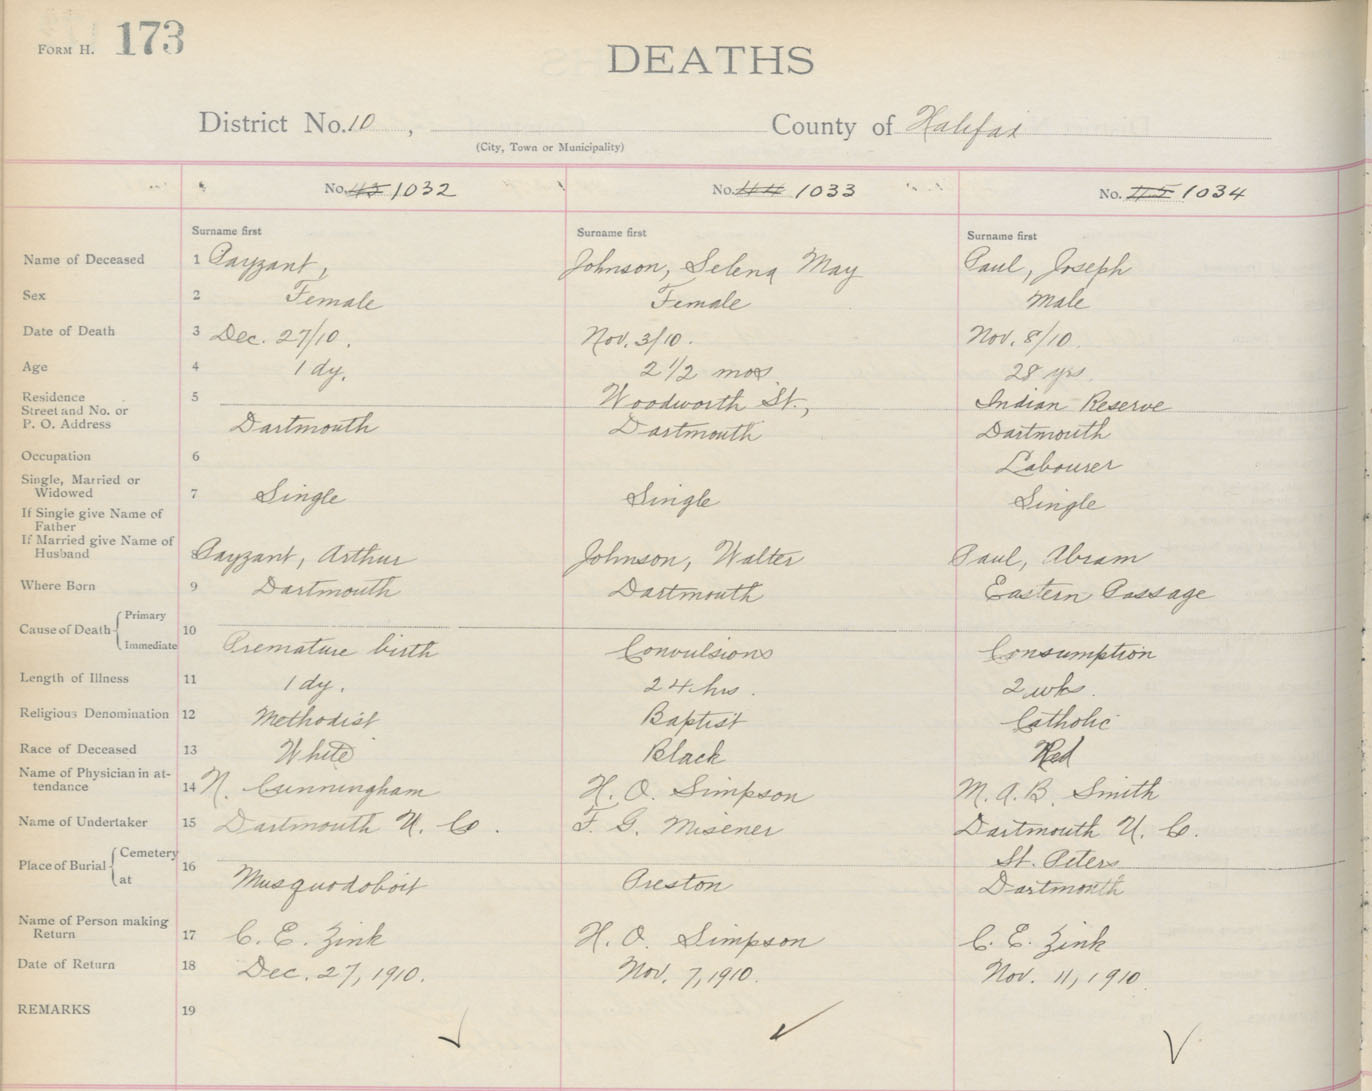 FORM H. 173
DEATHS
District No. 10 , County of Halifax
(City, Town or Municipality)
No. 43 1032 No. 44 1033 No. 45 1034
Surname first Surname first Surname first
Name of Deceased 1 Payzant, Johnson, Selena May Paul, Joseph
Sex 2 Female Female Male
Date of Death 3 Dec. 27/10. Nov. 3/10. Nov. 8/10.
Age 4 1 dy. 2 1/2 mos 28 yrs.
Residence 5 Woodworth St., Indian Reserve
Street and No. or
P. O. Address Dartmouth Dartmouth Dartmouth
Occupation 6 Labourer
Single, Married or
Widowed 7 Single Single Single
If Single give Name of
Father
If Married give Name of
Husband 8 Payzant, Arthur Johnson, Walter Paul, Abram
Where Born 9 Dartmouth Dartmouth Eastern Passage
Cause of Death Primary
Immediate 10 Premature birth Convulsions Consumption
Length of Illness 11 1 dy. 24 hrs. 2 wks.
Religious Denomination 12 Methodist Baptist Catholic
Race of Deceased 13 White Black Red
Name of Physician in at-
tendance 14 N. Cunningham H. O. Simpson M. A. B. Smith
Name of Undertaker 15 Dartmouth U. Co. F. G. Misener Dartmouth U. Co.
Place of Burial Cemetery St. Peters
at 16 Musquodoboit Preston Dartmouth
Name of Person making
Return 17 C. E. Zink H. O. Simpson C. E. Zink
Date of Return 18 Dec. 27, 1910. Nov. 7, 1910. Nov. 11, 1910.
REMARKS 19